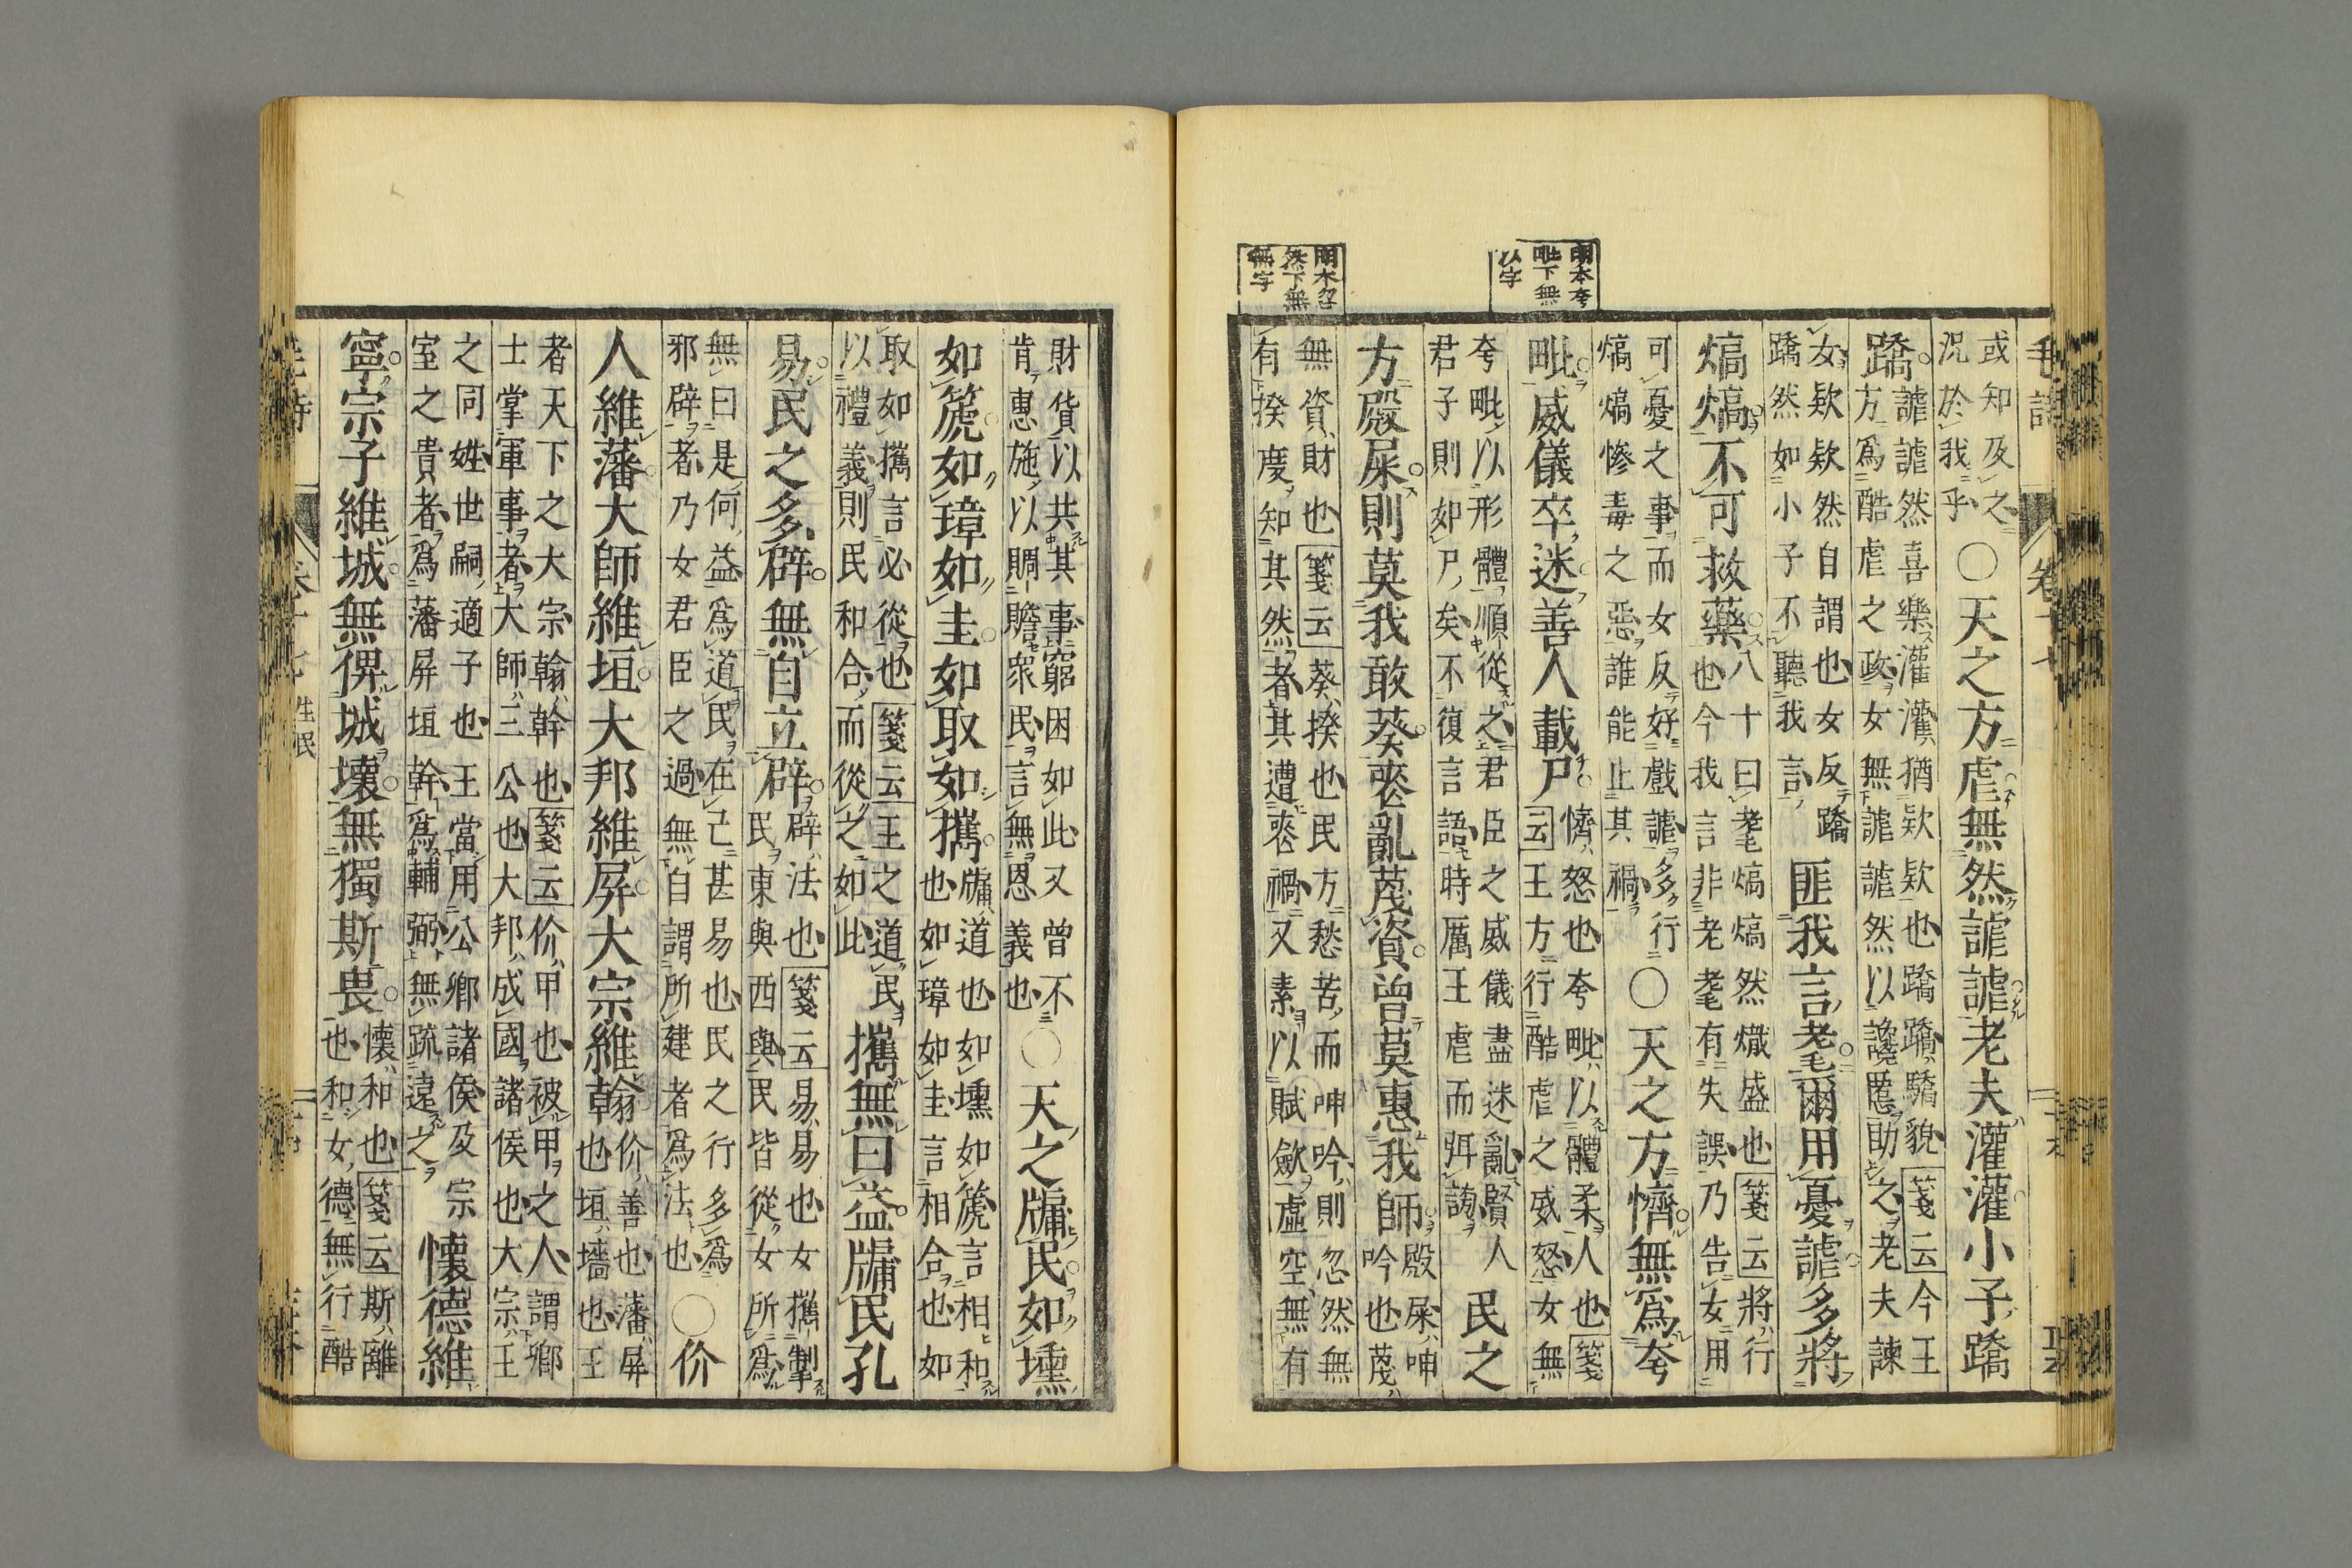 明本夸
毗下無
以字
明本忽
然下無
無字
毛詩 卷十七
或知及之
況於我乎
○天之方虐無然謔謔老夫灌灌小子蹻
蹻
謔謔然喜樂灌灌猶欵欵也蹻蹻驕貌箋云今王
方爲酷虐之政女無謔謔然以讒慝助之老夫諫
女欵欵然自謂也女反蹻
蹻然如小子不聽我言
匪我言耄爾用憂謔多將
熇熇不可救藥
八十曰耄熇熇然熾盛也箋云將行
也今我言非老耄有失誤乃告女用
可憂之事而女反好戲謔多行
熇熇慘毒之惡誰能止其禍
○天之方懠無爲夸
毗威儀卒迷善人載尸
懠怒也夸毗以體柔人也箋
云王方行酷虐之威怒女無
夸毗以形體順從之君臣之威儀盡迷亂賢人
君子則如尸矣不復言語時厲王虐而弭謗
民之
方殿屎則莫我敢葵喪亂蔑資曾莫惠我師
殿屎呻
吟也蔑
無資財也箋云葵揆也民方愁苦而呻吟則忽然無
有揆度知其然者其遭喪禍又素以賦斂虛空無有
財貨以共其事窮困如此又曾不
肯惠施以賙贍衆民言無恩義也
○天之牖民如壎
如篪如璋如圭如取如攜
牖道也如壎如篪言相和
也如璋如圭言相合也如
取如攜言必從也箋云王之道民
以禮義則民和合而從之如此
攜無曰益牖民孔
易民之多辟無自立辟
辟法也箋云易易也女攜掣
民東與西與民皆從女所爲
無曰是何益爲道民在己甚易也民之行多爲
邪辟者乃女君臣之過無自謂所建者爲法也
○价
人維藩大師維垣大邦維屏大宗維翰
价善也藩屏
也垣墻也王
者天下之大宗翰幹也箋云价甲也被甲之人謂卿
士掌軍事者大師三公也大邦成國諸侯也大宗王
之同姓世嗣適子也王當用公卿諸侯及宗
室之貴者爲藩屏垣幹爲輔弼無疏遠之
懷德維
寧宗子維城無俾城壞無獨斯畏
懷和也箋云斯離
也和女德無行酷
生民